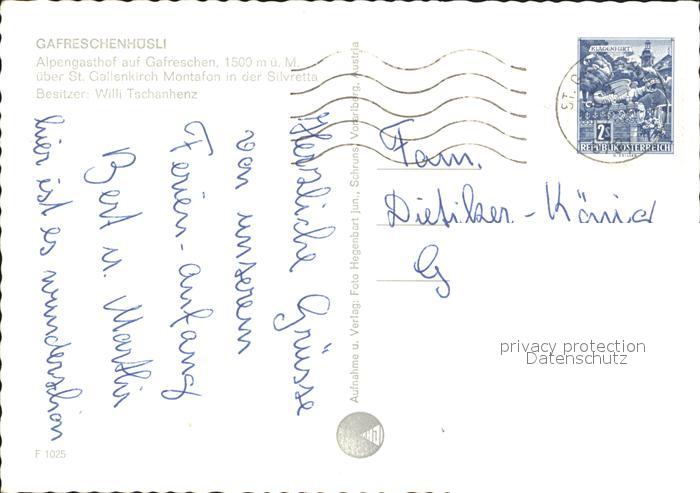 GAFRESCHENHÜSLI
Alpengasthof auf Gafreschen, 1500 m ü. M.
über St. Gallenkirch Montafon in der Silvretta
Besitzer: Willi Tschanhenz
Herzliche Grüsse
von unserem
Ferien-anfang
Bert u. Marthi
hier ist es wunderschön
F 1025
Aufnahme u. Verlag: Foto Hegenbart jun., Schruns, Vorarlberg, Austria
KLAGENFURT
2S
REPUBLIK ÖSTERREICH
ST. G
Fam.
Dietiker - König
G
privacy protection
Datenschutz